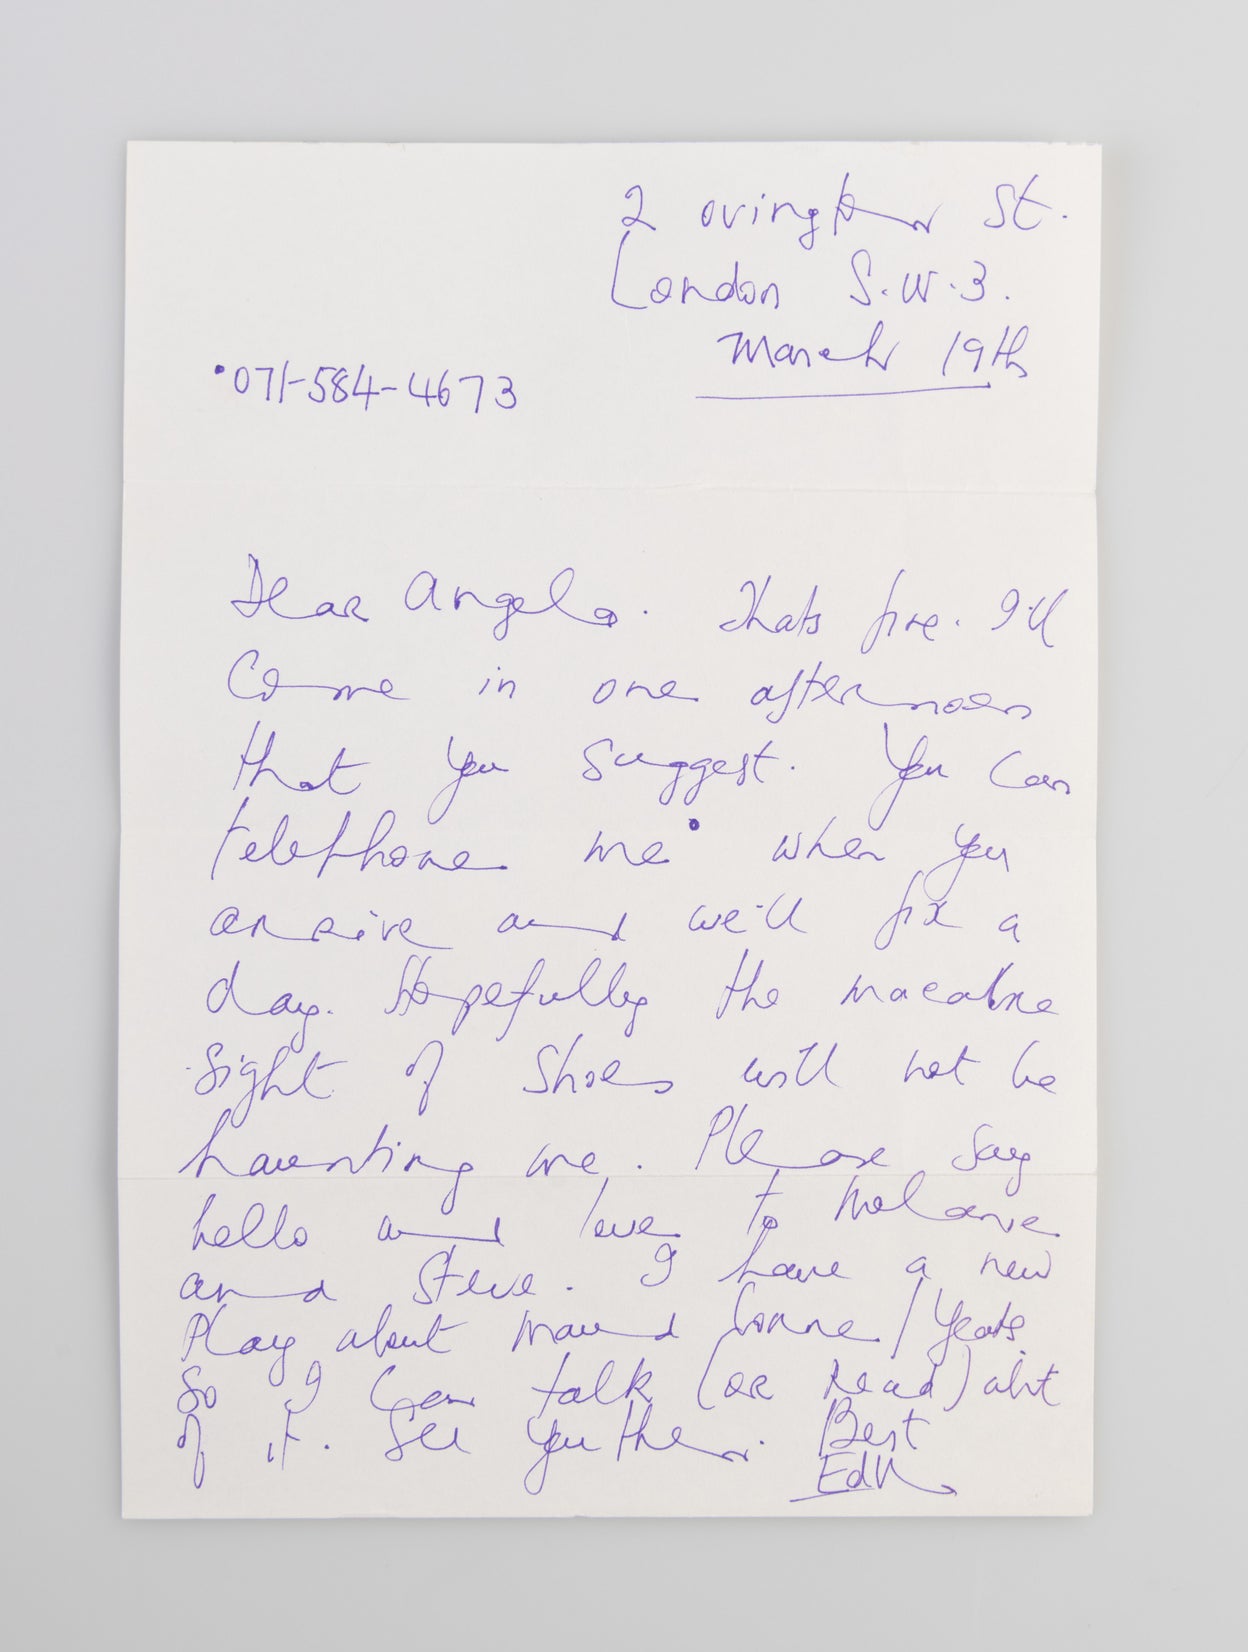 2 Ovington St.
London S.W.3.
March 19th
•071-584-4673
Dear Angela. Thats fine. I'll
Come in one afternoon
that you suggest. You can
telephone me• when you
arrive and we'll fix a
day. Hopefully the macabre
sight of Shoes will not be
haunting me. Please say
hello and love to Melanie
and Steve. I have a new
Play about Maud Gonne/Yeats
So I can talk (or read) abit
of it. See you then. Best
Edna